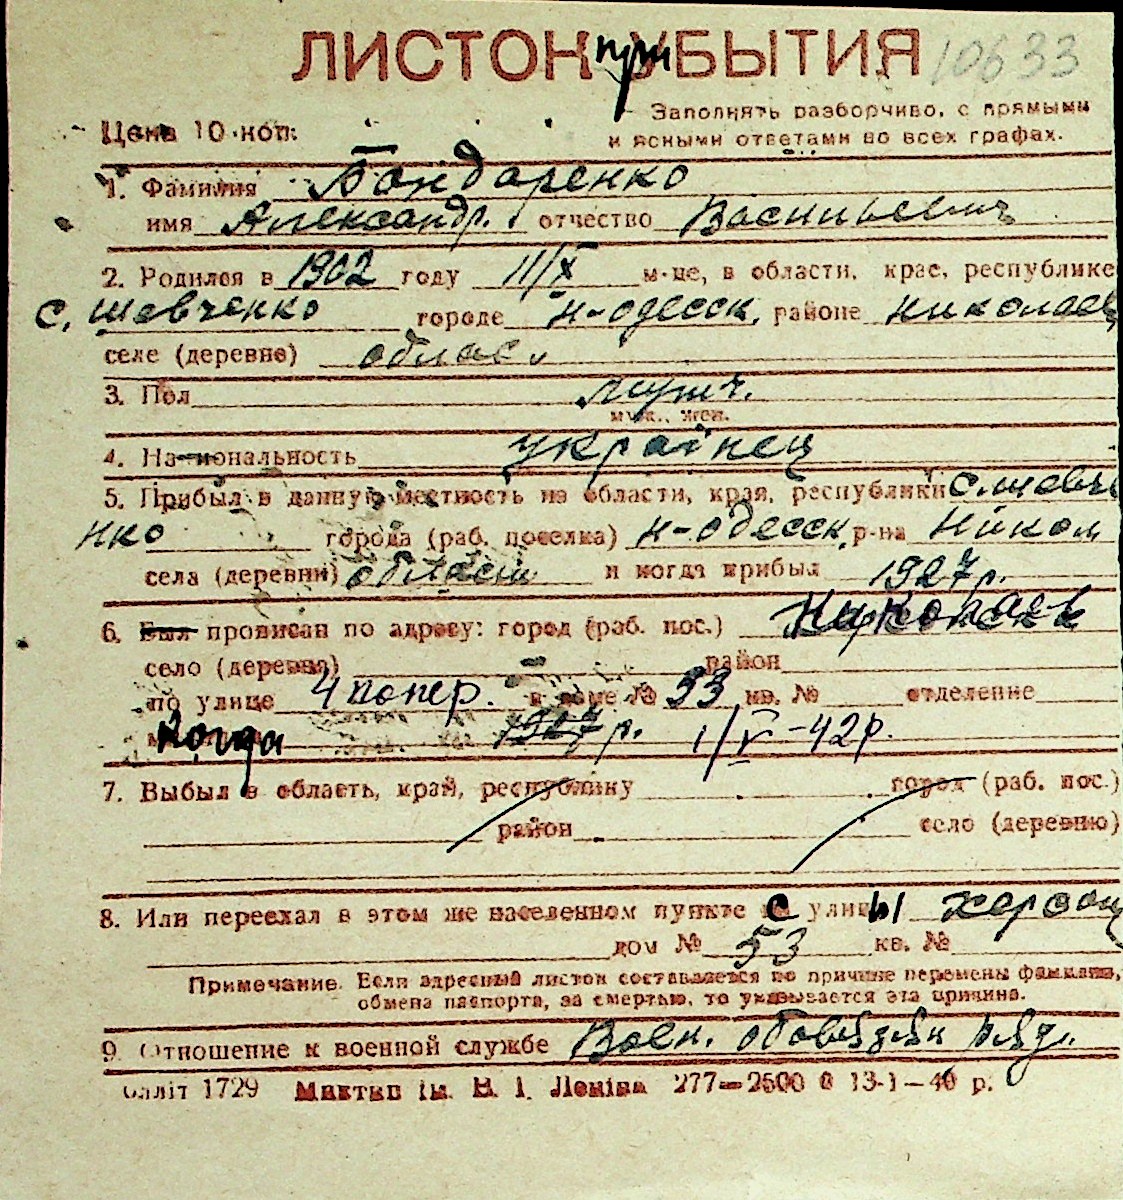 ЛИСТОК при УБЫТИЯ 10633
Заполнять разборчиво, с прямыми
Цена 10 коп. и ясными ответами во всех графах.
1. Фамилия Бондаренко
имя Александр. отчество Васильевич
2. Родился в 1902 году 11/X м-це, в области, крае, республике
с. Шевченко городе Н-Одесск. районе Николаев
селе (деревне) облас.
3. Пол муж.
муж., жен.
4. Национальность українец
5. Прибыл в данную местность из области, края, республики с. Шевче
нко города (раб. поселка) Н-Одесск. р-на Никол
села (деревни) области и когда прибыл 1927 р.
6. Был прописан по адресу: город (раб. пос.) Николаев
село (деревня) район
по улице 4 попер. в доме № 53 кв. № отделение
Когда 1927 р. 1/V-42 р.
7. Выбыл в область, край, республику город (раб. пос.)
район село (деревню)
8. Или переехал в этом же населенном пункте с улицы Херсон
дом № 53 кв. №
Примечание. Если адресный листок составляется по причине перемены фамилии,
обмена паспорта, за смертью, то указывается эта причина.
9. Отношение к военной службе Воен. обовязан ряд.
1729 ім. В. І. Леніна 277—2500 0 13-1—40 р.